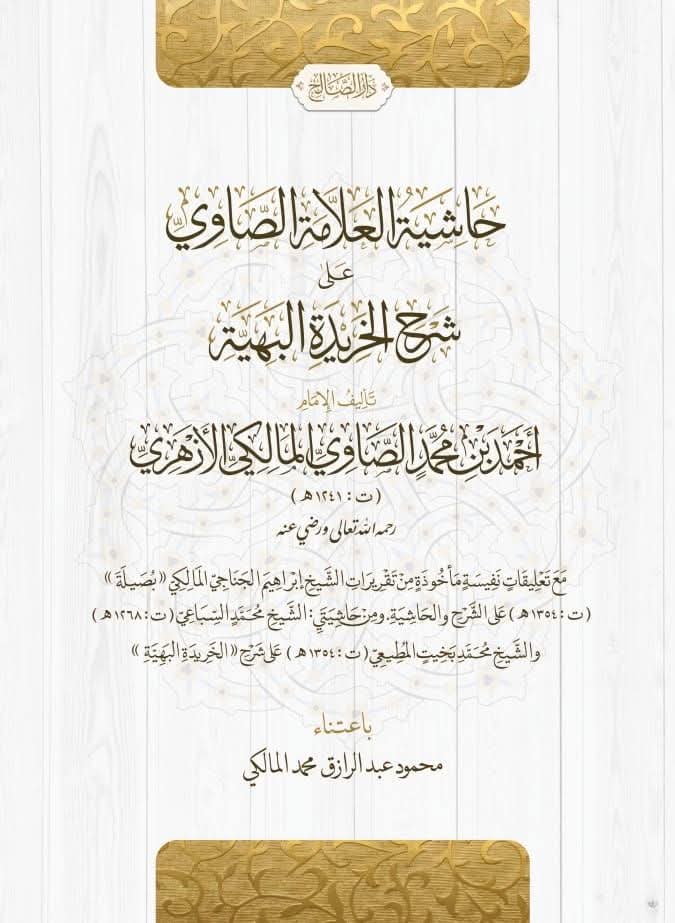 دَارُ الصَّالِح
حَاشِيَةُ العَلَّامَةِ الصَّاوِيِّ
عَلى
شَرْحِ الخَرِيْدَةِ البَهِيَّةِ
تَأْلِيفُ الإِمَامِ
أَحْمَدَ بْنِ مُحَمَّدٍ الصَّاوِيِّ المَالِكِيِّ الأَزْهَرِيِّ
( ت : ١٢٤١ هـ )
رحمه الله تعالى ورضي عنه
مَعَ تَعْلِيقَاتٍ نَفِيسَةٍ مَأْخُوذَةٍ مِنْ تَقْرِيرَاتِ الشَّيْخِ إِبْرَاهِيمَ الجَنَاجِيِّ المَالِكِي « بُصَيلَةَ »
( ت : ١٣٥٤ هـ ) عَلى الشَّرْحِ والحَاشِيَةِ. ومِنْ حَاشِيَتَيِ : الشَّيْخِ مُحَمَّدٍ السِّبَاعِيِّ ( ت : ١٢٦٨ هـ )
والشَّيْخِ مُحَمَّد بَخِيتٍ المُطِيعِيِّ ( ت : ١٣٥٤ هـ ) عَلى شَرْحِ « الخَرِيدَةِ البَهِيَّةِ »
باعتناء
محمود عبد الرازق محمد المالكي